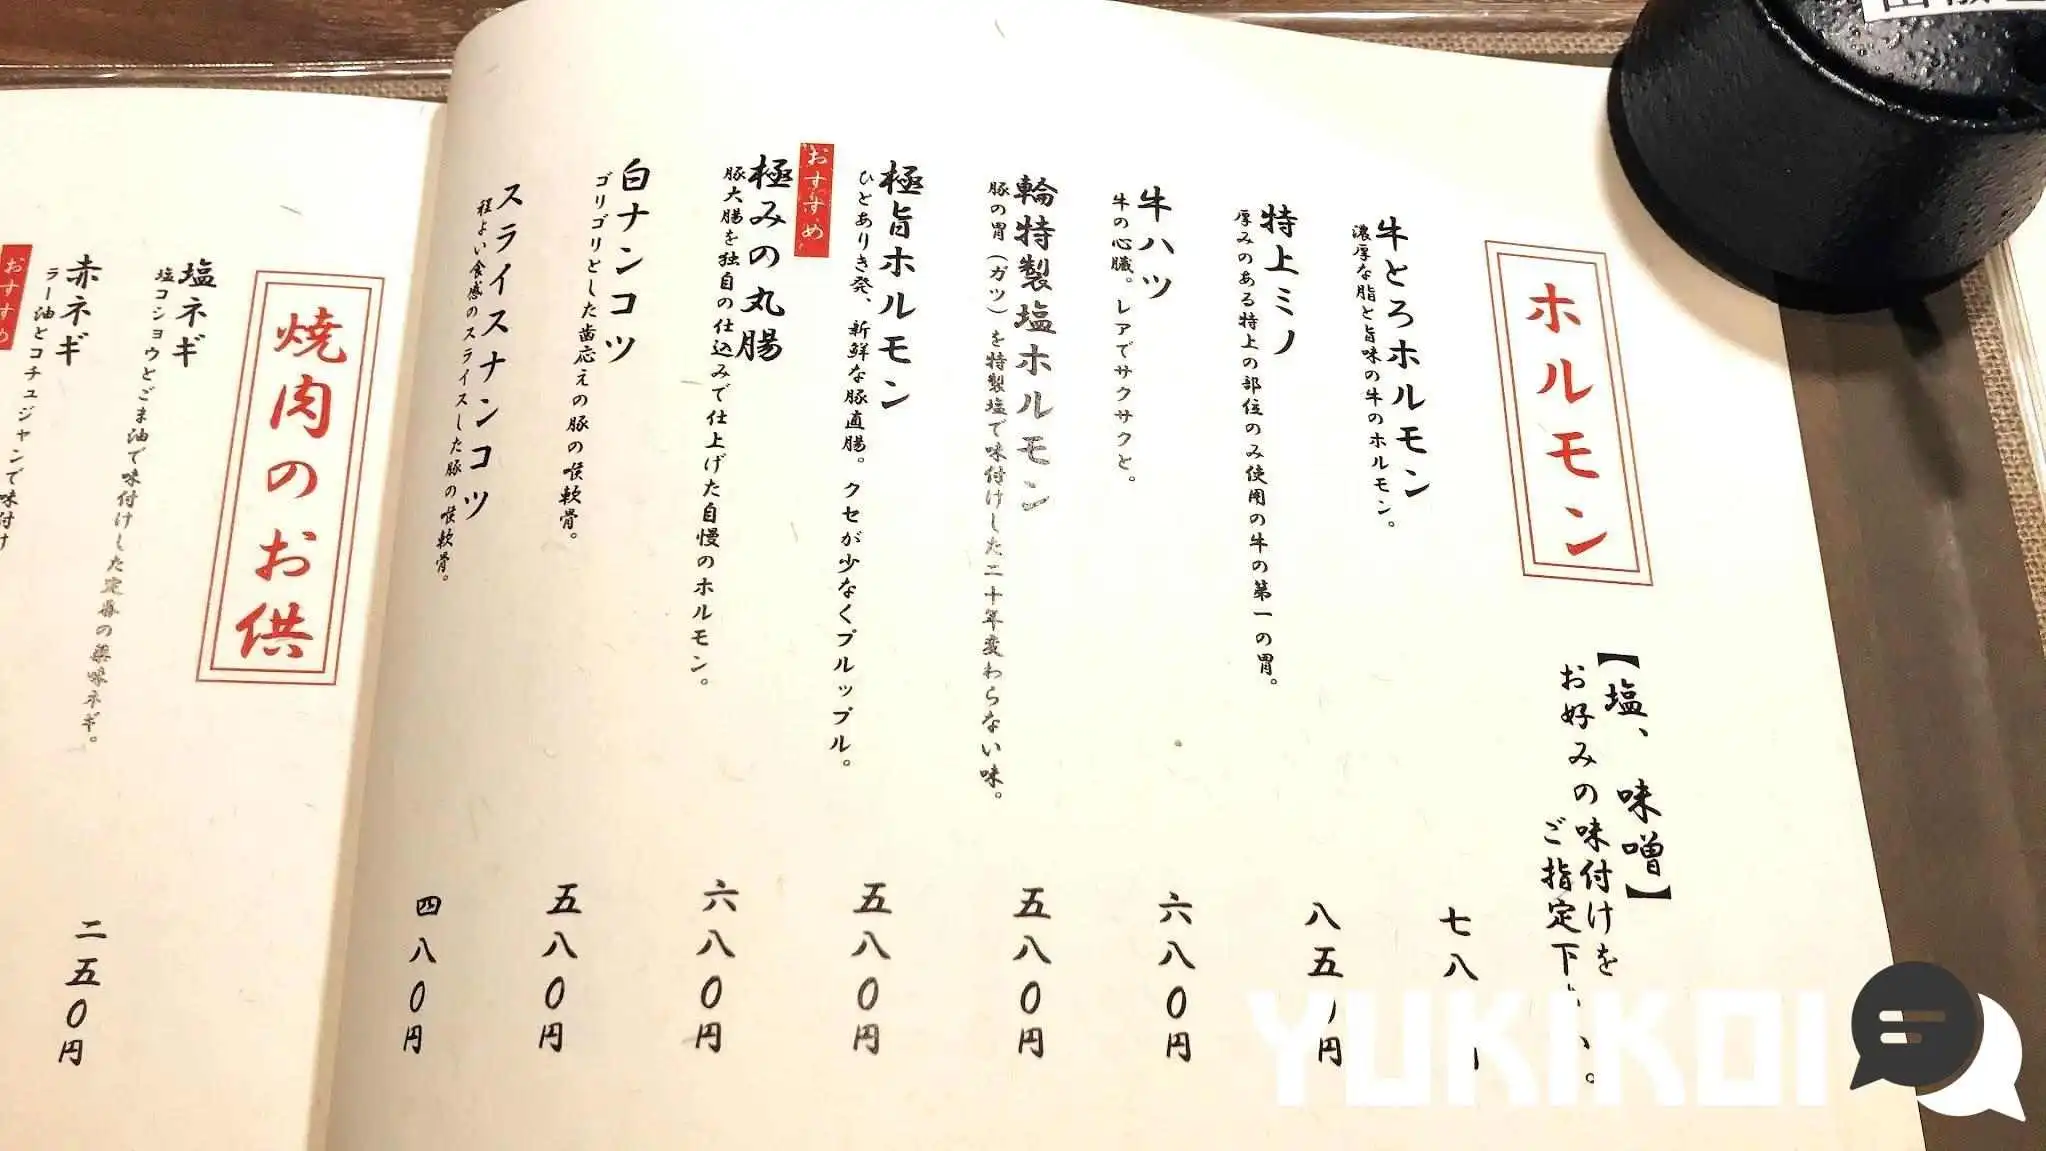 ホルモン
【塩、味噌】
お好みの味付けを
ご指定下
牛とろホルモン
濃厚な脂と旨味の牛のホルモン。
七八
特上ミノ
厚みのある特上の部位のみ使用の牛の第一の胃。
八五 円
牛ハツ
牛の心臓。レアでサクサクと。
六八0円
輪特製塩ホルモン
豚の胃(ガツ)を特製塩で味付けした二十年変わらない味。
五八0円
極旨ホルモン
ひとありき発、新鮮な豚直腸。クセが少なくプルップル。
五八0円
おすすめ
極みの丸腸
豚大腸を独自の仕込みで仕上げた自慢のホルモン。
六八0円
白ナンコツ
ゴリゴリとした歯応えの豚の喉軟骨。
五八0円
スライスナンコツ
程よい食感のスライスした豚の喉軟骨。
四八0円
焼肉のお供
塩ネギ
塩コショウとごま油で味付けした定番の薬味ネギ。
二五0円
赤ネギ
ラー油とコチュジャンで味付け
おすすめ
YUKIKOI